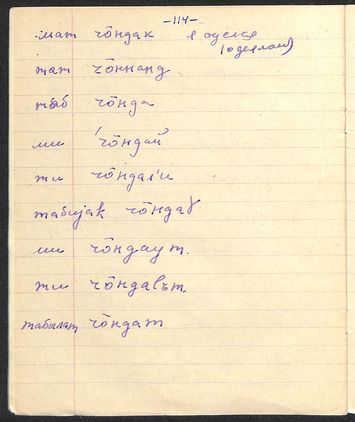 -114-
мат чōндак я оделся
(одеялом)
тат чōннанд
таб чōнда
ми чōндай
ти чōндал'и
табијак чōндаɣ
ми чōндаут.
ти чōндавът
табылат чōндат